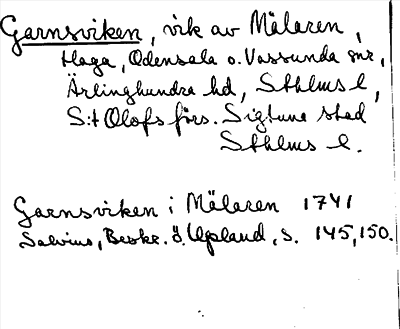 Garnsviken, vik av Mälaren,
Haga, Odensala o. Vassunda snr,
Ärlinghundra hd, Sthlms l,
S:t Olofs förs. Sigtuna stad
Sthlms l.
Garnsviken i Mälaren 1741
Salvius, Beskr. ö. Upland, s. 145, 150.